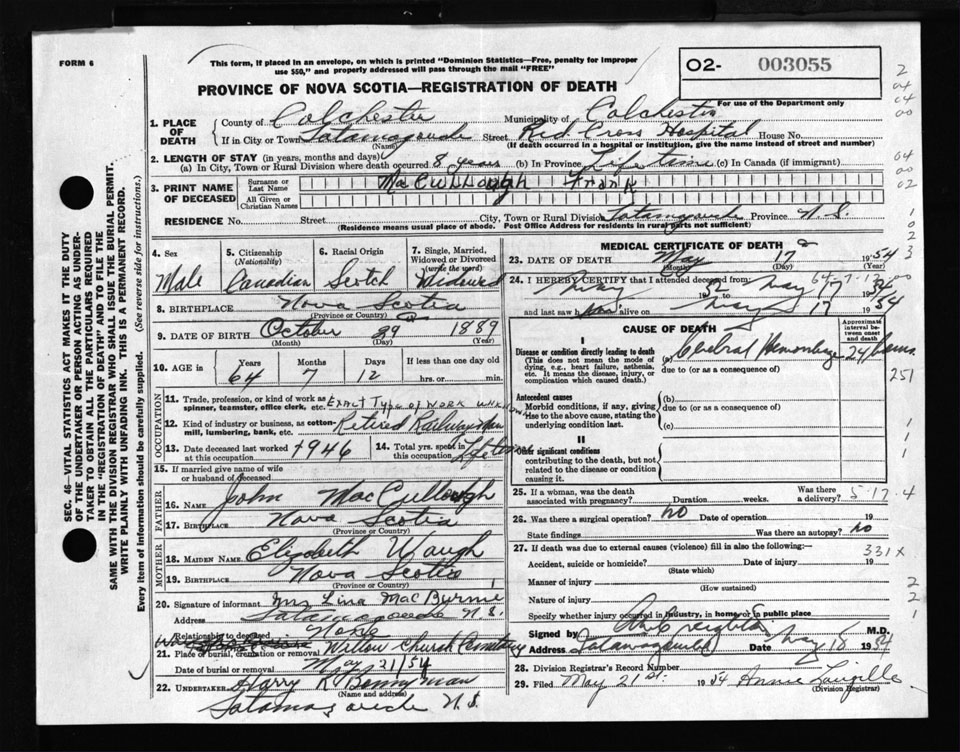 FORM 6
This form, if placed in an envelope, on which is printed "Dominion Statistics—Free, penalty for improper
use $50," and properly addressed will pass through the mail "FREE"
PROVINCE OF NOVA SCOTIA—REGISTRATION OF DEATH
O2- 003055
For use of the Department only
1. PLACE OF DEATH
County of Colchester Municipality of Colchester
If in City or Town Tatamagouche Street Red Cross Hospital House No.
(Name) (If death occurred in a hospital or institution, give the name instead of street and number)
2. LENGTH OF STAY (in years, months and days)
(a) In City, Town or Rural Division where death occurred 8 years (b) In Province Life time (c) In Canada (if immigrant)
3. PRINT NAME OF DECEASED
Surname or Last Name MacCullough Frank
All Given or Christian Names
RESIDENCE No. Street City, Town or Rural Division Tatamagouche Province N.S.
(Residence means usual place of abode. Post Office Address for residents in rural parts not sufficient)
4. Sex Male
5. Citizenship (Nationality) Canadian
6. Racial Origin Scotch
7. Single, Married, Widowed or Divorced (write the word) Widowed
8. BIRTHPLACE Nova Scotia
(Province or Country)
9. DATE OF BIRTH October 29 1889
(Month) (Day) (Year)
10. AGE in Years 64 Months 7 Days 12 If less than one day old hrs. or min.
OCCUPATION
11. Trade, profession, or kind of work as spinner, teamster, office clerk, etc. Exact Type of Work unknown
12. Kind of industry or business, as cotton-mill, lumbering, bank, etc. Retired Railway Man
13. Date deceased last worked at this occupation 1946
14. Total yrs. spent in this occupation Lifetime
15. If married give name of wife or husband of deceased
FATHER
16. NAME John MacCullough
17. BIRTHPLACE Nova Scotia
(Province or Country)
MOTHER
18. MAIDEN NAME Elizabeth Waugh
19. BIRTHPLACE Nova Scotia
(Province or Country)
20. Signature of informant Mrs Lina MacBurnie
Address Tatamagouche N.S.
Relationship to deceased None
21. Place of burial, cremation or removal Willow Church Cemetery
Date of burial or removal May 21/54
22. UNDERTAKER Harry R Bonnyman
(Name and address)
Tatamagouche N.S.
MEDICAL CERTIFICATE OF DEATH
23. DATE OF DEATH May 17 1954
(Month) (Day) (Year)
24. I HEREBY CERTIFY that I attended deceased from
May 54 to May 17 1954
and last saw him alive on May 17 1954
CAUSE OF DEATH
Approximate interval between onset and death
I
Disease or condition directly leading to death (a) Cerebral Hemorrhage 24 hours
(This does not mean the mode of dying, e.g., heart failure, asthenia, etc. It means the disease, injury, or complication which caused death.)
due to (or as a consequence of)
251
Antecedent causes
Morbid conditions, if any, giving rise to the above cause, stating the underlying condition last.
(b)
due to (or as a consequence of)
(c)
II
Other significant conditions
contributing to the death, but not related to the disease or condition causing it.
25. If a woman, was the death associated with pregnancy? Duration weeks. Was there a delivery?
5-17-4
26. Was there a surgical operation? no Date of operation 19
State findings Was there an autopsy? no
27. If death was due to external causes (violence) fill in also the following:—
331X
Accident, suicide or homicide? Date of injury 19
(State which)
Manner of injury
(How sustained)
Nature of injury
Specify whether injury occurred in industry, in home, or in public place
Signed by M.D.
Address Tatamagouche Date May 18 1954
28. Division Registrar's Record Number
29. Filed May 21st. 1954 Annie
(Division Registrar)
SEC. 46—VITAL STATISTICS ACT MAKES IT THE DUTY
OF THE UNDERTAKER OR PERSON ACTING AS UNDER-
TAKER TO OBTAIN ALL THE PARTICULARS REQUIRED
IN THE "REGISTRATION OF DEATH" AND TO FILE THE
SAME WITH THE DIVISION REGISTRAR WHO SHALL ISSUE THE BURIAL PERMIT.
WRITE PLAINLY WITH UNFADING INK. THIS IS A PERMANENT RECORD.
Every item of information should be carefully supplied. (See reverse side for instructions.)